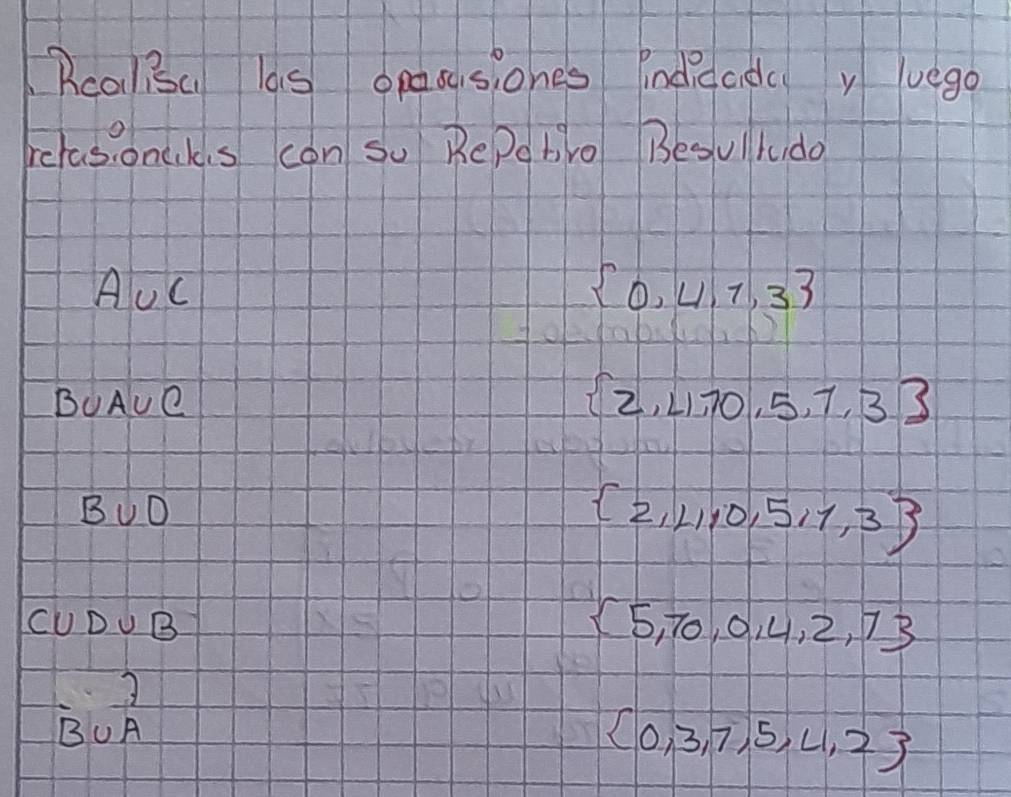 Realisa las oparasiones indicada y luego
relasionalas con su Repetivo Resultado
A∪C {0,4,1,3}
B∪A∪C {2,4,10,5,1,3}
B∪D {2,4,10,5,1,3}
C∪D∪B {5,10,0,4,2,1}
B∪A {0,3,1,5,4,2}